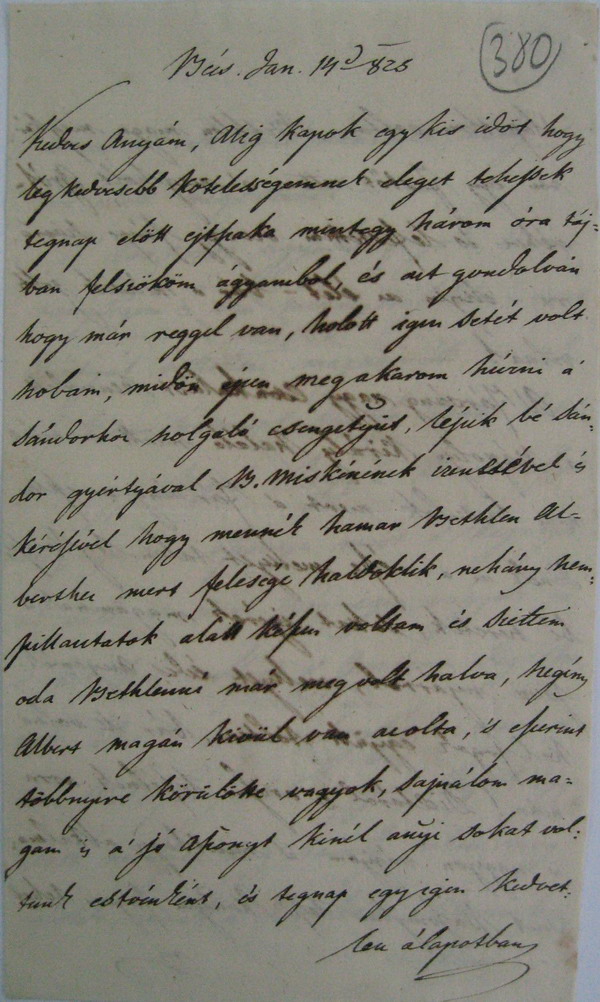 380
Bécs. Jan. 14d 825
Kedves Anyám, Alig kapok egy kis időt hogy
legkedvesebb kötelességemnek eleget tehessek
tegnap elött ejtszaka mintegy három óra táj-
ban felszököm ágyambol, és azt gondolván
hogy már reggel van, holott igen setét volt
hobám, midőn épen megakarom húzni á
Sándorhoz szolgaló csengetyűt, lépik bé Sán-
dor gyertyával B. Miskínének izenetével is
kérésével hogy mennék hamar Bethlen Al-
berthez mert felesége haldoklik, nehány szem-
pillantatok alatt készen voltam és siettem
oda Bethlenné mar megvolt halva, szegény
Albert magán kivül van azolta, 's eszerint
többnyire körülötte vagyok, sajnálom ma-
gam is á jó Aszonyt kinél añyi sokat vol-
tunk estvénként, és tegnap egy igen kedvet-
len álapotban